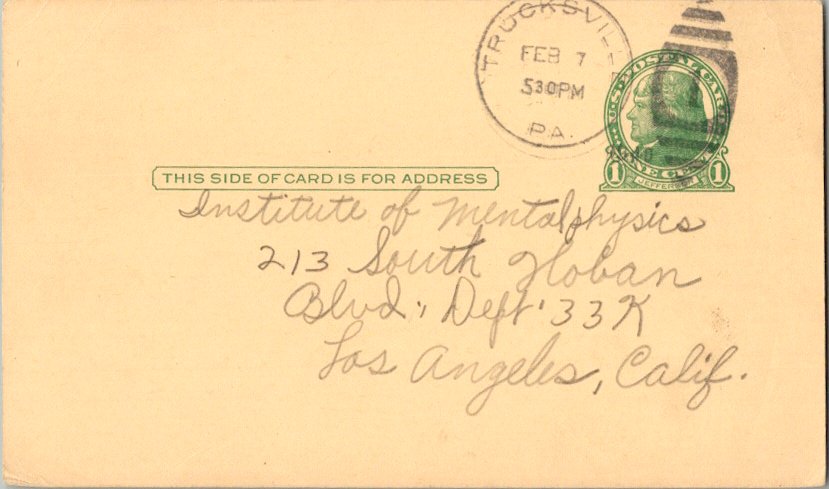 TRUCKSVILL
FEB 7
530PM
PA.
U.S. POSTAL CARD
ONE CENT
1 JEFFERSON 1
THIS SIDE OF CARD IS FOR ADDRESS
Institute of Mentalphysics
213 South Hoban
Blvd., Dept. 33K
Los Angeles, Calif.